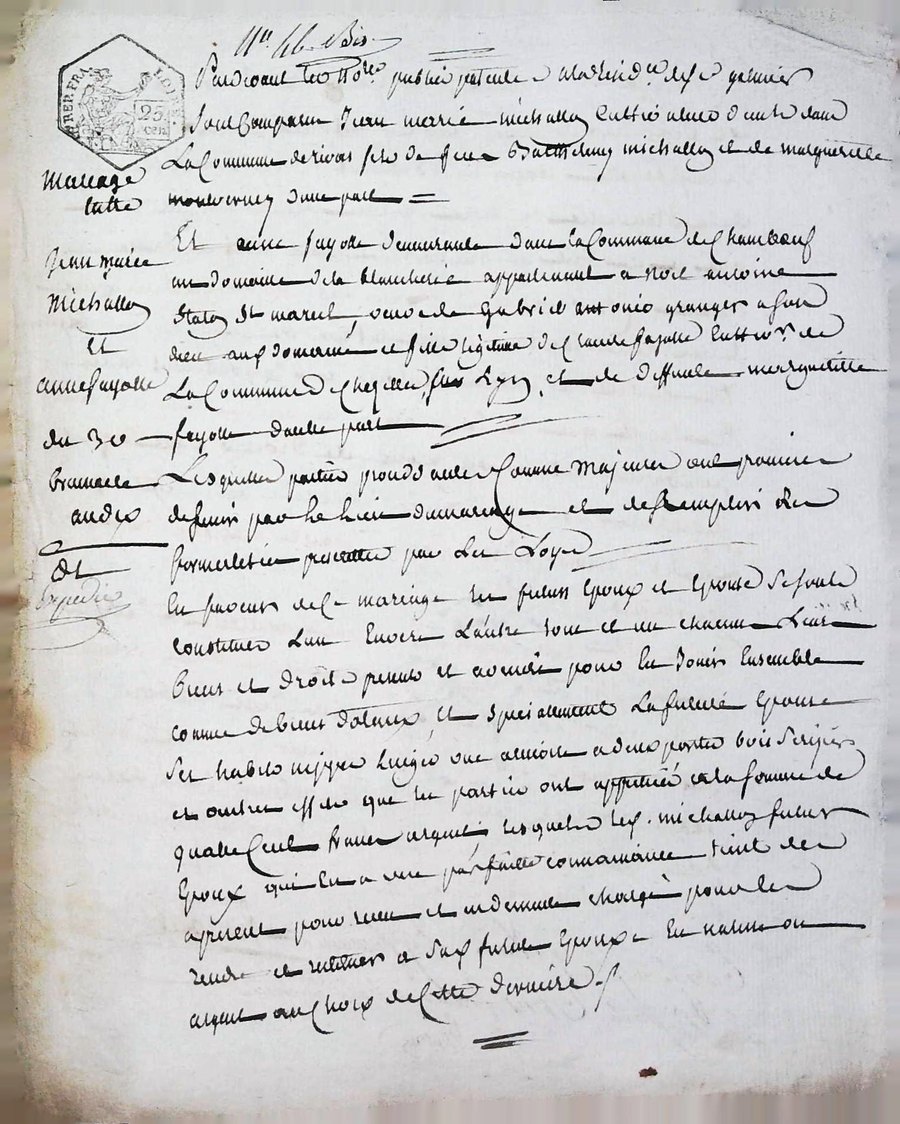 RÉP. FRA.
LOIRE
25
cen
Pardevant les No.re public
Sont Comparu Jean marie michallon Cultivateur demt dans
La Commune de rivas fils de feu Barthelemy michallon et de marguerite
montverney d'une part
mariage
Et anne fayolle demeurante dans la Commune de Chambeuf
au domaine de la blancherie appartenant a Noel antoine
Jean marie
Michallon
Et
anne fayolle
veuve de Gabriel antoine granger
fille légitime de Claude fayolle Cultiv.r de
La Commune de Chazelle sur Lyon, et de deffunte marguerite
du 30
fayolle d'autre part
brumaire
an dix
Lesquelles parties procedantes Comme majeures ont promis
de s'unir par le lien du mariage et de remplir les
formalités prescrittes par Les Loys
Et
Expedié
En faveur de Ce mariage les futurs Epoux et Epouse se sont
constitués L'un Envers L'autre tout et un chacun Leurs
biens et droits presents et avenir pour En Jouir Ensemble
comme de biens dotaux, Et specialement La future Epouse
ses habits nippes linges une armoire a deux portes bois
et autres effets que les parties ont apprécié a la somme de
quatre Cent francs argent, lesquels led. michallon futur
Epoux qui En a une parfaitte connoissance tient des
a present pour reçu et en demeure chargé pour les
rendre et restituer a sad. future Epouse En nature ou
argent au Choix de Cette derniere.